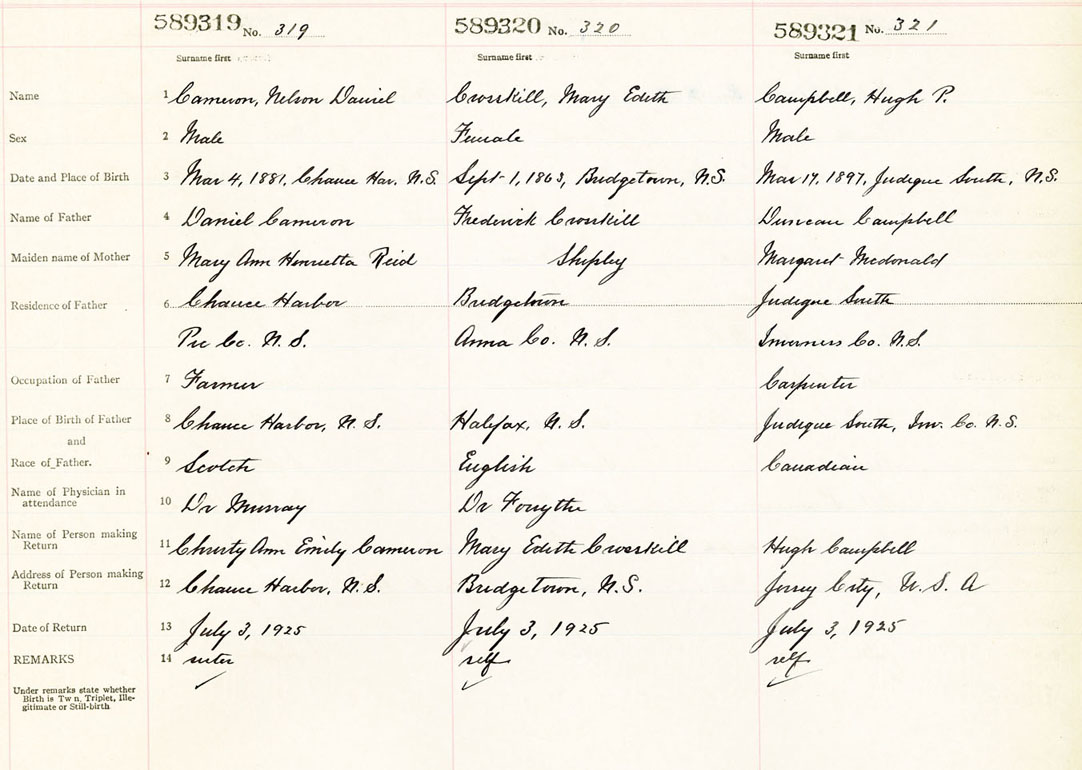 589319 No. 319 589320 No. 320 589321 No. 321
Surname first Surname first Surname first
Name 1 Cameron, Nelson Daniel Crosskill, Mary Edith Campbell, Hugh P.
Sex 2 Male Female Male
Date and Place of Birth 3 Mar 4, 1881, Chance Har. N.S. Sept 1, 1863, Bridgetown, N.S. Mar 17, 1897, Judique South, N.S.
Name of Father 4 Daniel Cameron Frederick Crosskill Duncan Campbell
Maiden name of Mother 5 Mary Ann Henrietta Reid Shipley Margaret Mcdonald
Residence of Father 6 Chance Harbor Bridgetown Judique South
Pic Co. N.S. Anna Co. N.S. Inverness Co. N.S.
Occupation of Father 7 Farmer Carpenter
Place of Birth of Father 8 Chance Harbor, N.S. Halifax, N.S. Judique South, Inv. Co. N.S.
and
Race of Father. 9 Scotch English Canadian
Name of Physician in
attendance 10 Dr Murray Dr Forsythe
Name of Person making
Return 11 Christy Ann Emily Cameron Mary Edith Crosskill Hugh Campbell
Address of Person making
Return 12 Chance Harbor, N.S. Bridgetown, N.S. Jersey City, U.S.A
Date of Return 13 July 3, 1925 July 3, 1925 July 3, 1925
REMARKS 14 sister self self
Under remarks state whether
Birth is Tw n, Triplet, Ille-
gitimate or Still-birth